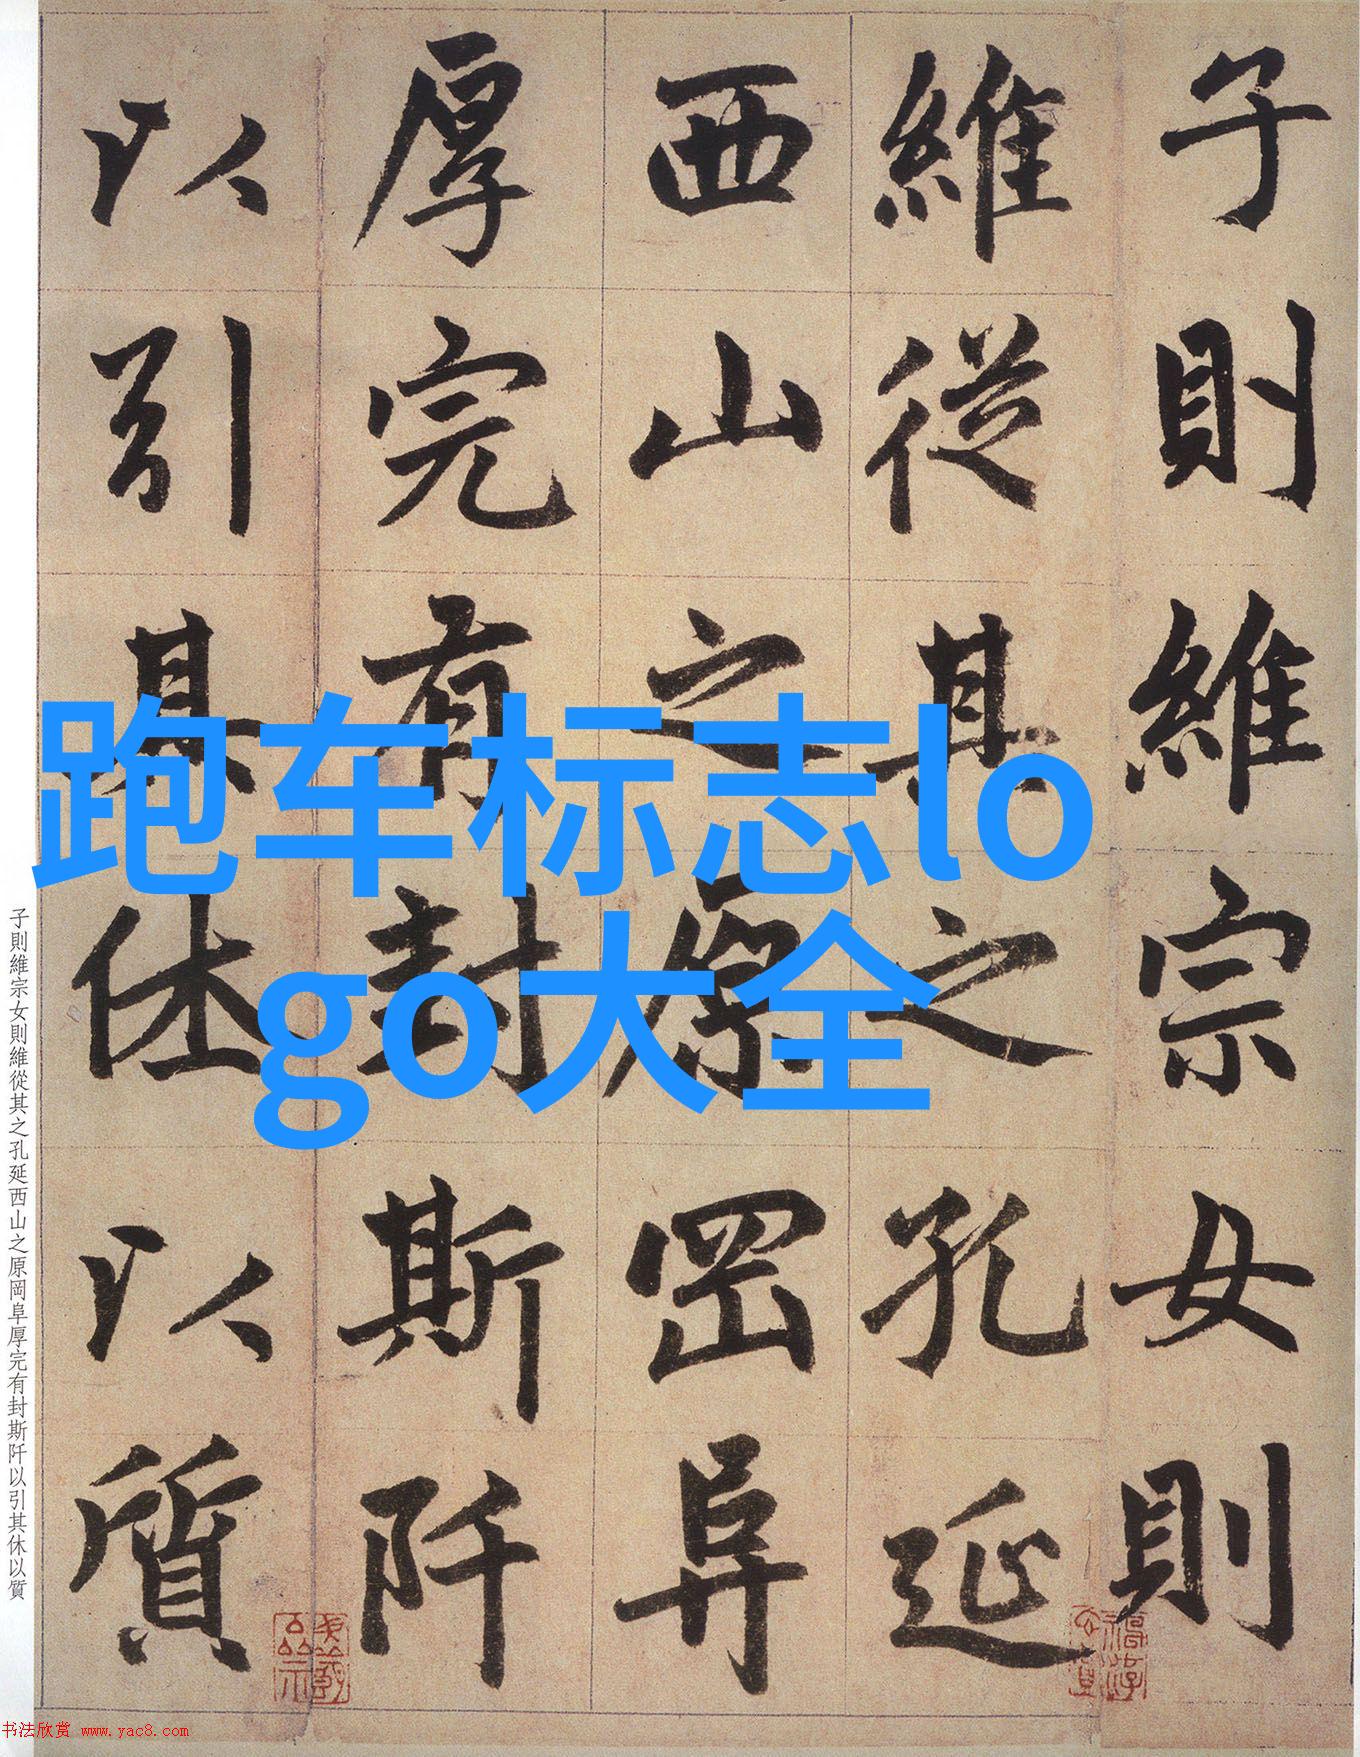 子則維宗女則
維從其之孔延
西山之原岡阜
厚完有封斯阡
以引其休以質
跑车标志lo
go大全
子則維宗女則維從其之孔延西山之原岡阜厚完有封斯阡以引其休以質
书法欣赏 www.yac8.com